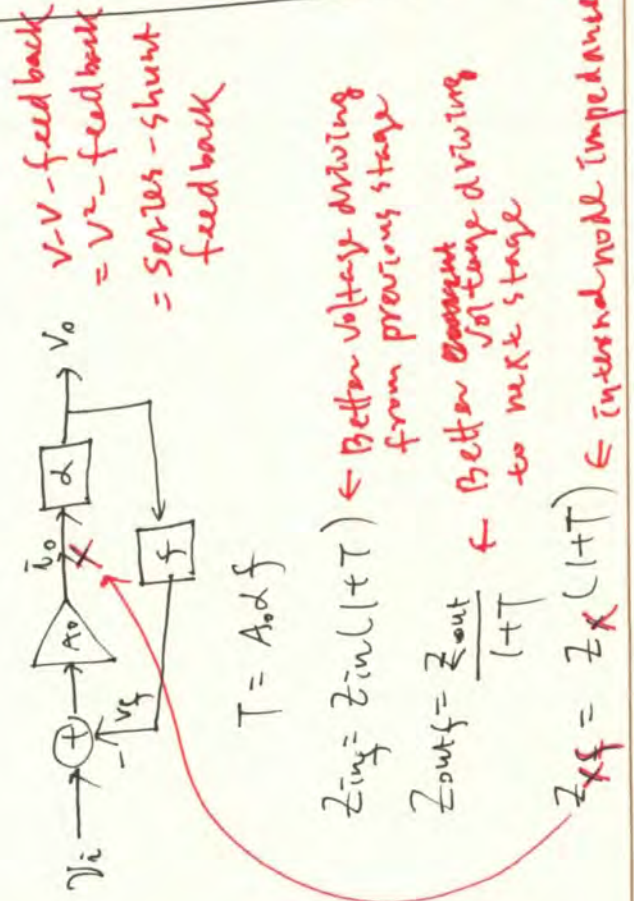 v-v-feedback
= v²-feedback
= series-shunt
feedback
Vi + A0 io α Vo
-
vf
f
X
T = A0αf
Zinf = Zin(1+T) ← Better voltage driving
from previous stage
Zoutf = Zout/1+T ← Better voltage driving
to next stage
Zxf = Zx(1+T) ← internal node impedance